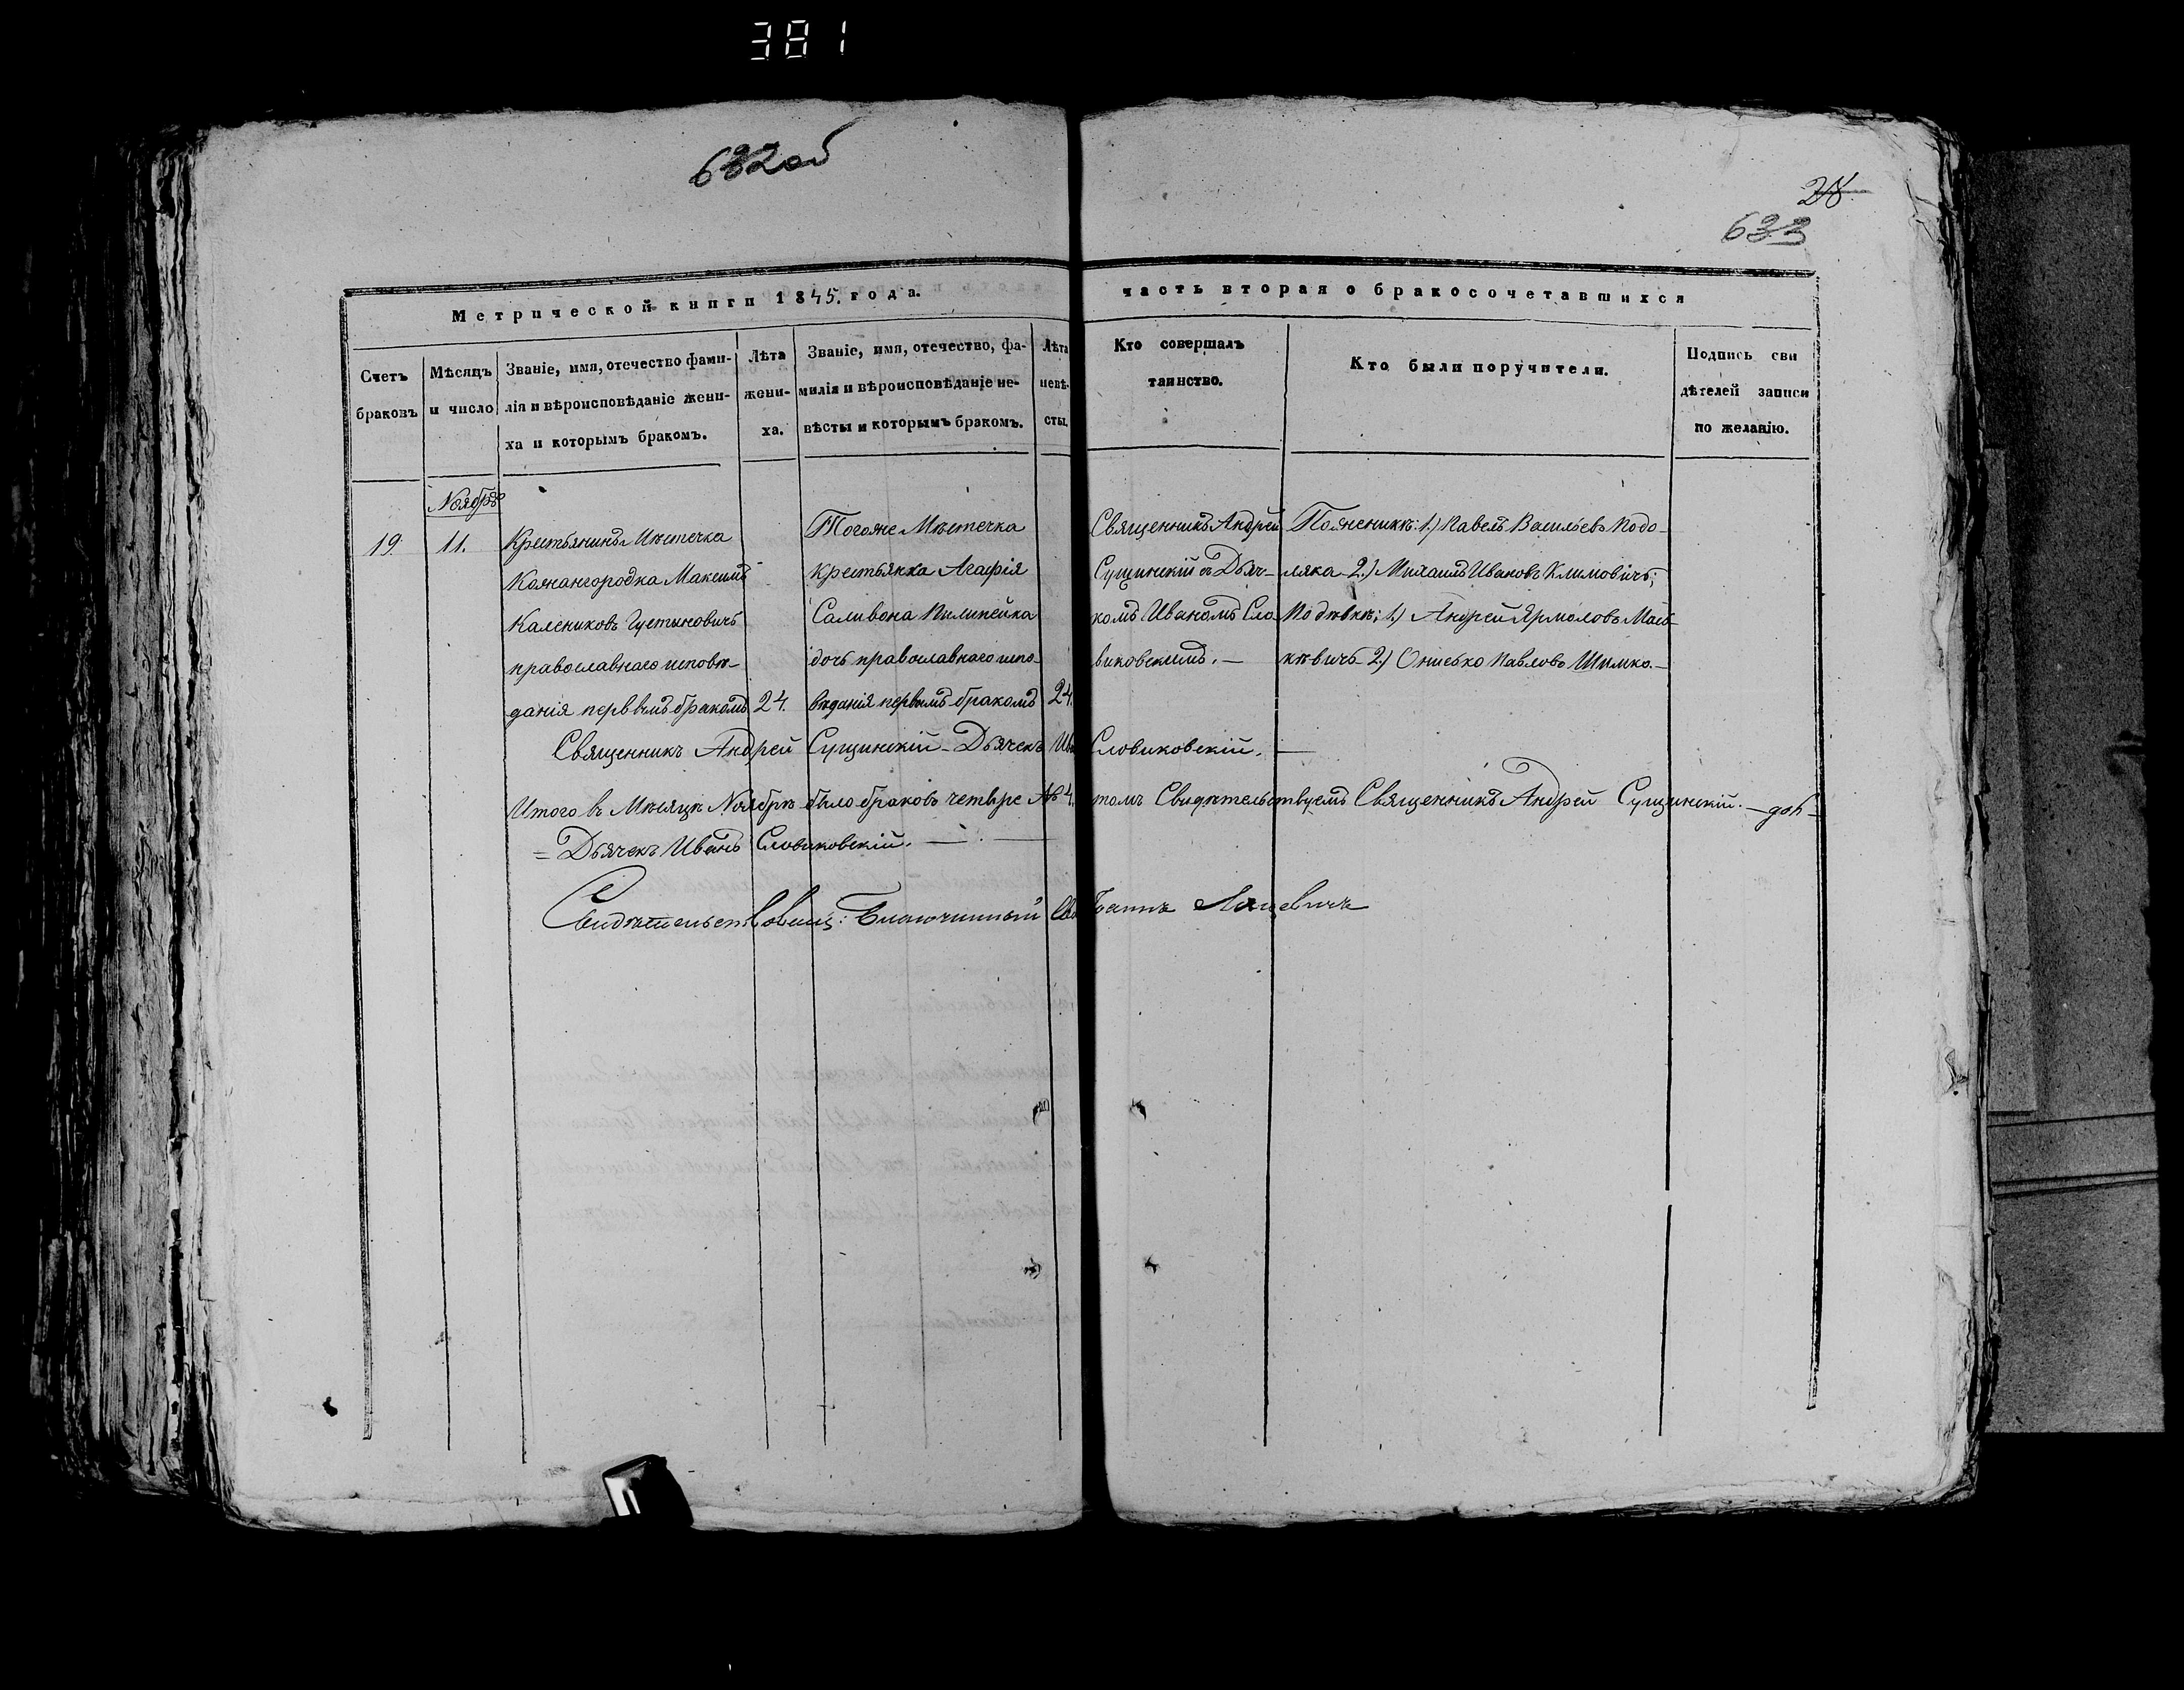 381
632об
28
633
Метрической книги 1845. года.
часть вторая о бракосочетавшихся
Счетъ браковъ
Мѣсяцъ и число
Званіе, имя, отечество фами-
лія и вѣроисповѣданіе жени-
ха и которымъ бракомъ.
Лѣта жени-ха.
Званіе, имя, отечество, фа-
милія и вѣроисповѣданіе не-
вѣсты и которымъ бракомъ.
Лѣта невѣ-сты.
Кто совершалъ
таинство.
Кто были поручители.
Подпись сви
дѣтелей записи
по желанію.
Ноябрь
19
11.
Крестьянинъ Мѣстечка
Кожангородка Максимъ
Калениковъ Густиновичъ
православнаго исповѣ-
данія первымъ бракомъ
24.
Тогоже Мѣстечка
крестьянка Агафія
Саливона Пилипейка
дочь православнаго испо-
вѣданія первымъ бракомъ
24.
Священникъ Андрей
Сущинскій съ Дьяч-
комъ Иваномъ Сло
виковскимъ.—
По женикѣ: 1.) Павелъ Васильевъ Подо-
ляка 2.) Михаилъ Ивановъ Климовичъ;
По дѣвкѣ: 1.) Андрей Ярмоловъ Мась-
кѣвичъ 2.) Онисько Павловъ Шимко.—
Священникъ Андрей Сущинскій - Дьячекъ Ива Словиковскій. —
Итого въ Мѣсяцѣ Ноябрѣ было браковъ четыре № 4. томъ Свидѣтельствуемъ Священникъ Андрей Сущинскій. —
= Дьячекъ Иванъ Словиковскій. —
Свидѣтельствовалъ: Благочинный Іоаннъ